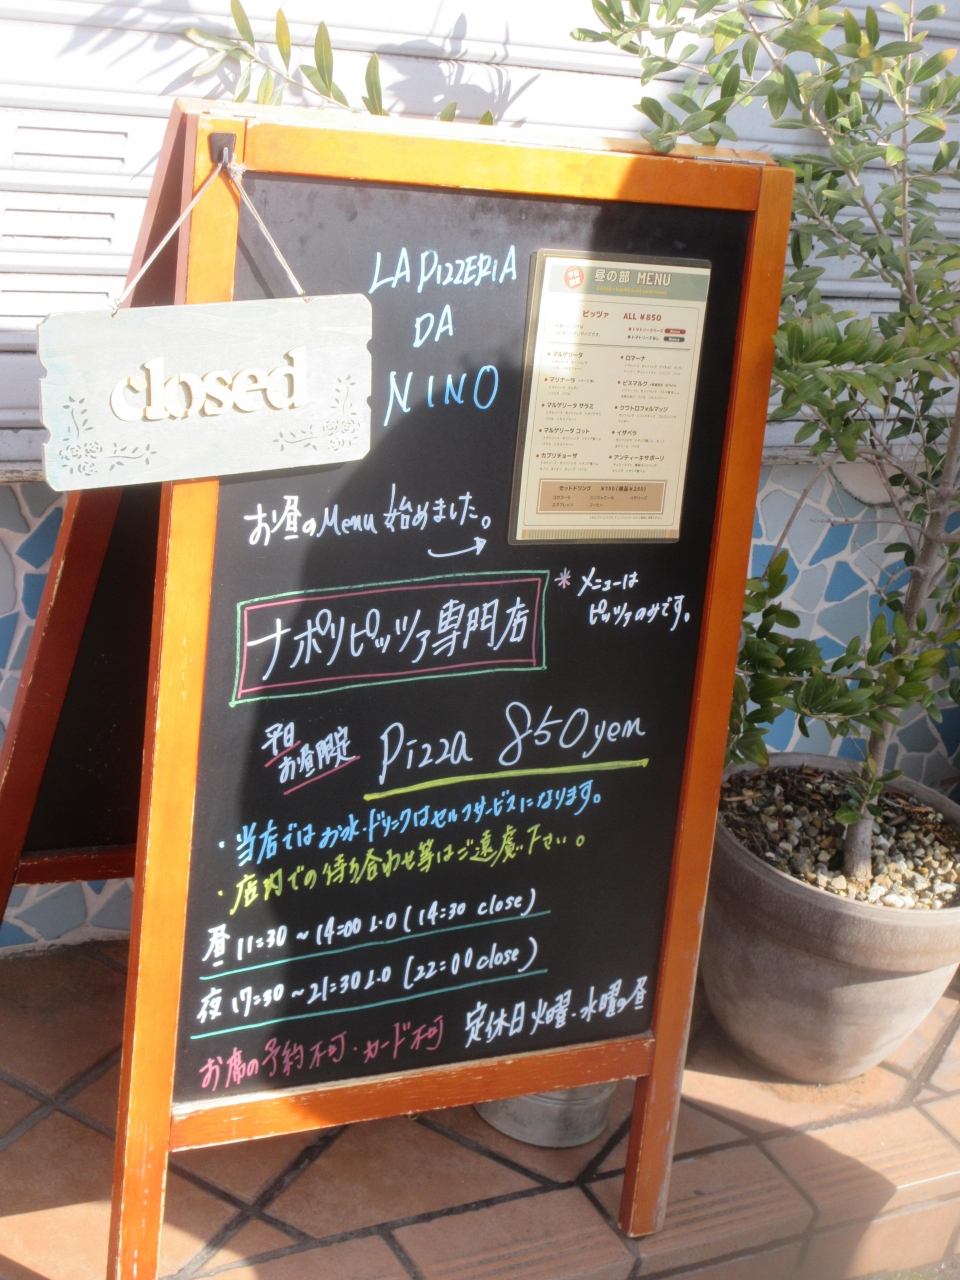 closed
LA PIZZERIA
DA
NINO
昼の部 MENU
ピッツァ ALL ¥850
マルゲリータ
マリナーラ
マルゲリータ サラミ
マルゲリータ コット
カプリチョーザ
ロマーナ
ビスマルク
クワトロフォルマッジ
イザベラ
アンティーキサポーリ
セットドリンク ¥100(単品¥250)
エスプレッソ コーヒー
お昼のMenu 始めました。
＊メニューは
ピッツァのみです。
ナポリピッツァ専門店
平日
お昼限定
Pizza 850yen
・当店ではお水・ドリンクはセルフサービスになります。
・店内での待ち合わせ等はご遠慮下さい。
昼 11:30 ～ 14:00 L.O (14:30 close)
夜 17:30 ～ 21:30 L.O (22:00 close)
お席の予約不可・カード不可
定休日 火曜・水曜の昼